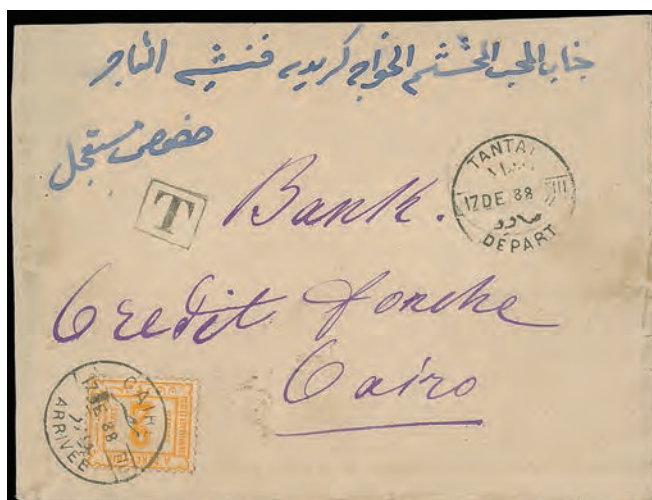 جناب المحب المحتشم الخواجه كريديه فنشيه التاجر
خصوصى مستعجل
TANTA
17 DE 88
DEPART
T
Bank.
Credit fonche
Cairo
CAIR
17 DE 88
ARRIVÉE